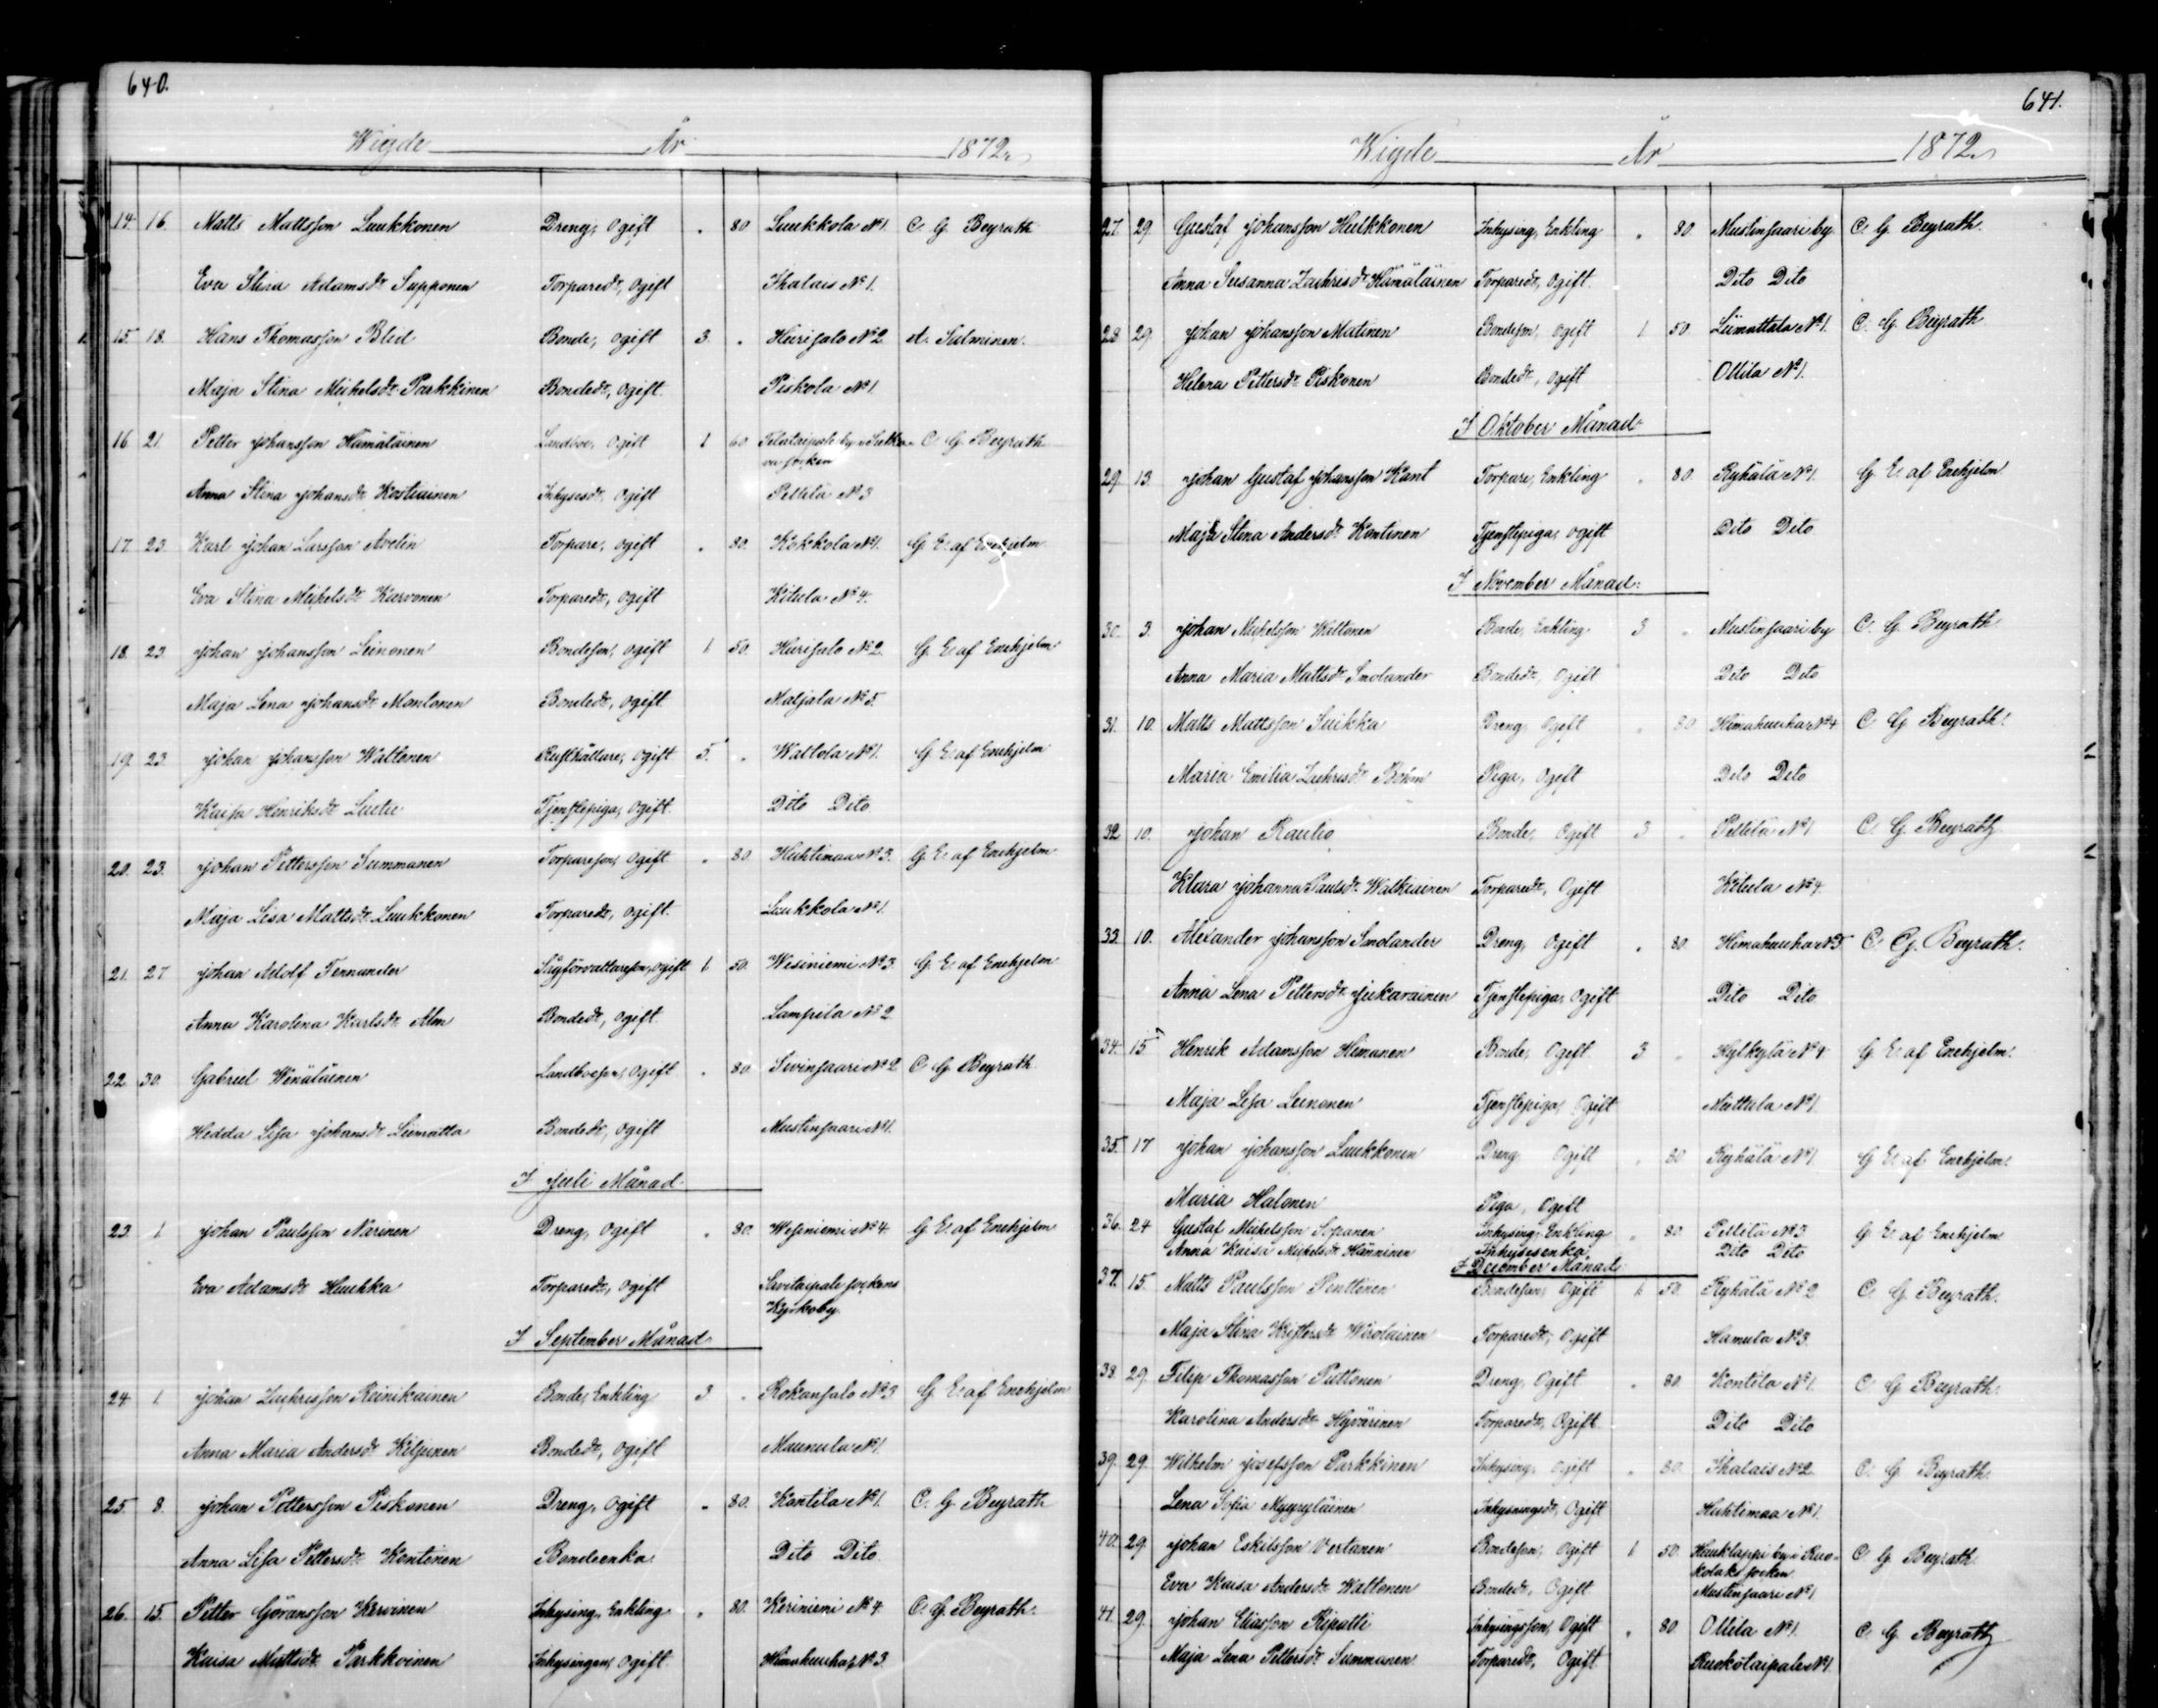 640.
Wigde År 1872.
14. 16. Matts Mattsson Luukkonen Dreng, Ogift . 80 Luukkola No 1. C. G. Beyrath
Eva Stina Adamsdr Supponen Torparedr, Ogift Ihalais No 1.
15. 18. Hans Thomasson Bled Bonde, Ogift 3. . Hurisalo No 2 A. Salminen.
Maja Stina Mickelsdr Parkkinen Bondedr, Ogift. Piskola No 1
16 21. Petter Johansson Hämäläinen Landboe, Ogift 1 60 C. G. Beyrath
Anna Stina Johansdr Kostiainen Inhysesdr, Ogift Pellilä No 3
17. 23. Karl Johan Larsson Avelin Torpare, Ogift . 80. Kokkola No 1. G. E. af Enehjelm
Eva Stina Mickelsdr Karvonen Torparedr, Ogift Kitula No 4.
18. 23. Johan Johansson Leinonen Bondeson, Ogift 1. 50. Hurisalo No 2. G. E. af Enehjelm
Maja Lena Johansdr Montonen Bondedr, Ogift Matjala No 5.
19. 23. Johan Johansson Waltonen Rusthållare, Ogift 5. . Waltola No 1. G. E. af Enehjelm
Kaisa Henriksdr Tjenstepiga, Ogift. Dito Dito
20. 23. Johan Pettersson Summanen Torpareson, Ogift . 80. Huhtimaa No 3. G. E. af Enehjelm
Maja Lisa Mattsdr Luukkonen Torparedr, Ogift. Luukkola No 1.
21. 27 Johan Adolf Fernander Sågförvaltareson, Ogift 1 50. Wesiniemi No 3. G. E. af Enehjelm
Anna Karolina Karlsdr Alm Bondedr, Ogift. Lampila No 2
22. 30. Gabriel Wenäläinen Landboeson, Ogift . 80. No 2 C. G. Beyrath
Hedda Lisa Johansdr Liimatta Bondedr, Ogift Mustinsaari No 1.
I Juli Månad
23. 1. Johan Paulsson Närinen Dreng, Ogift . 80. Wesiniemi No 4. G. E. af Enehjelm
Eva Adamsdr Huuhka Torparedr, Ogift Savitaipale sockens
I September Månad
24. 1. Johan Zachrisson Reinikainen Bonde, Enkling 3 . Rokansalo No 3 G. E. af Enehjelm
Anna Maria Andersdr Kiljunen Bondedr, Ogift Maunula No 1.
25 8. Johan Pettersson Piskonen Dreng, Ogift . 80. Kontila No 1. C. G. Beyrath
Anna Lisa Pettersdr Kontinen Bondeenka Dito Dito
26. 15. Petter Göransson Kervinen Inhysing, Enkling . 80. Keriniemi No 4. C. G. Beyrath.
Kaisa Mattsdr Parkkoinen Ogift. Himahuuha No 3.
641.
Wigde År 1872
27. 29. Gustaf Johansson Hulkkonen Inhysing, Enkling . 80. Mustinsaari by C. G. Beyrath.
Anna Susanna Zachrisdr Hämäläinen Torparedr, Ogift Dito Dito
28. 29. Johan Johansson Matinen Bondeson, Ogift 1 50. Liimattala No 1. C. G. Beyrath
Helena Pettersdr Piskonen Bondedr, Ogift Ollila No 1.
I Oktober Månad
29. 13. Johan Gustaf Johansson Kant Torpare, Enkling . 80. Ryhälä No 1. G. E. af Enehjelm
Maja Stina Andersdr Kontinen Tjenstepiga, Ogift Dito Dito
I November Månad:
30. 3. Johan Mickelsson Waltonen Bonde, Enkling 3 . Mustinsaari by C. G. Beyrath
Anna Maria Mattsdr Smolander Bondedr, Ogift Dito Dito
31. 10. Matts Mattsson Suikka Dreng, Ogift . 80. Himahuuha No 4 C. G. Beyrath.
Maria Emilia Zachrisdr Böhm Piga, Ogift Dito Dito
32 10. Johan Rautio Bonde, Ogift 3 . Pellilä No 1 C. G. Beyrath
Klara Johanna Paulsdr Watkiainen Torparedr, Ogift Kitula No 4.
33. 10. Alexander Johansson Smolander Dreng, Ogift . 80. Himahuuha No 5 C. G. Beyrath.
Anna Lena Pettersdr Jukarainen Tjenstepiga, Ogift Dito Dito
34. 15 Henrik Adamsson Himanen Bonde, Ogift 3 . Kylkylä No 4 G. E. af Enehjelm.
Maja Lisa Leinonen Tjenstepiga, Ogift Miettula No 1
35. 17 Johan Johansson Luukkonen Dreng, Ogift . 80 Ryhälä No 1 G. E. af Enehjelm.
Maria Halonen Piga, Ogift
36. 24 Gustaf Mickelsson Sopanen Inhysing, Enkling . 80. Pellilä No 3 G. E. af Enehjelm
Anna Kaisa Mickelsdr Hänninen Inhysesenka Dito Dito
I December Månad
37. 15. Matts Paulsson Penttinen Bondeson, Ogift 1. 50. Ryhälä No 2 C. G. Beyrath.
Maja Stina Kristersdr Wirolainen Torparedr, Ogift Hamula No 3.
38. 29. Filip Thomasson Puttonen Dreng, Ogift . 80. Kontila No 1. C. G. Beyrath.
Karolina Andersdr Hyvärinen Torparedr, Ogift. Dito Dito
39. 29. Wilhelm Josefsson Parkkinen Inhysing, Ogift . 80. Ihalais No 2. C. G. Beyrath.
Lena Sofia Myyryläinen Inhysingsdr, Ogift Huhtimaa No 1.
40. 29. Johan Eskilsson Vertanen Bondeson, Ogift 1 50. Hauklappi by i Ruo- C. G. Beyrath
kolaks socken
Eva Kaisa Andersdr Waltonen Bondedr, Ogift Mustinsaari No 1
41. 29. Johan Eliasson Ripatti Inhysingsson, Ogift . 80. Ollila No 1. C. G. Beyrath
Maja Lena Pettersdr Summanen Torparedr, Ogift. Ruokotaipale No 1.